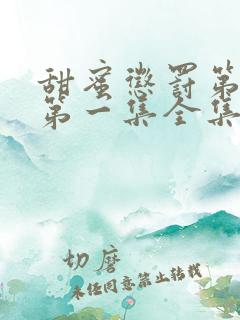 甜蜜惩罚第
第一集全集
切磨
未经同意禁止转载